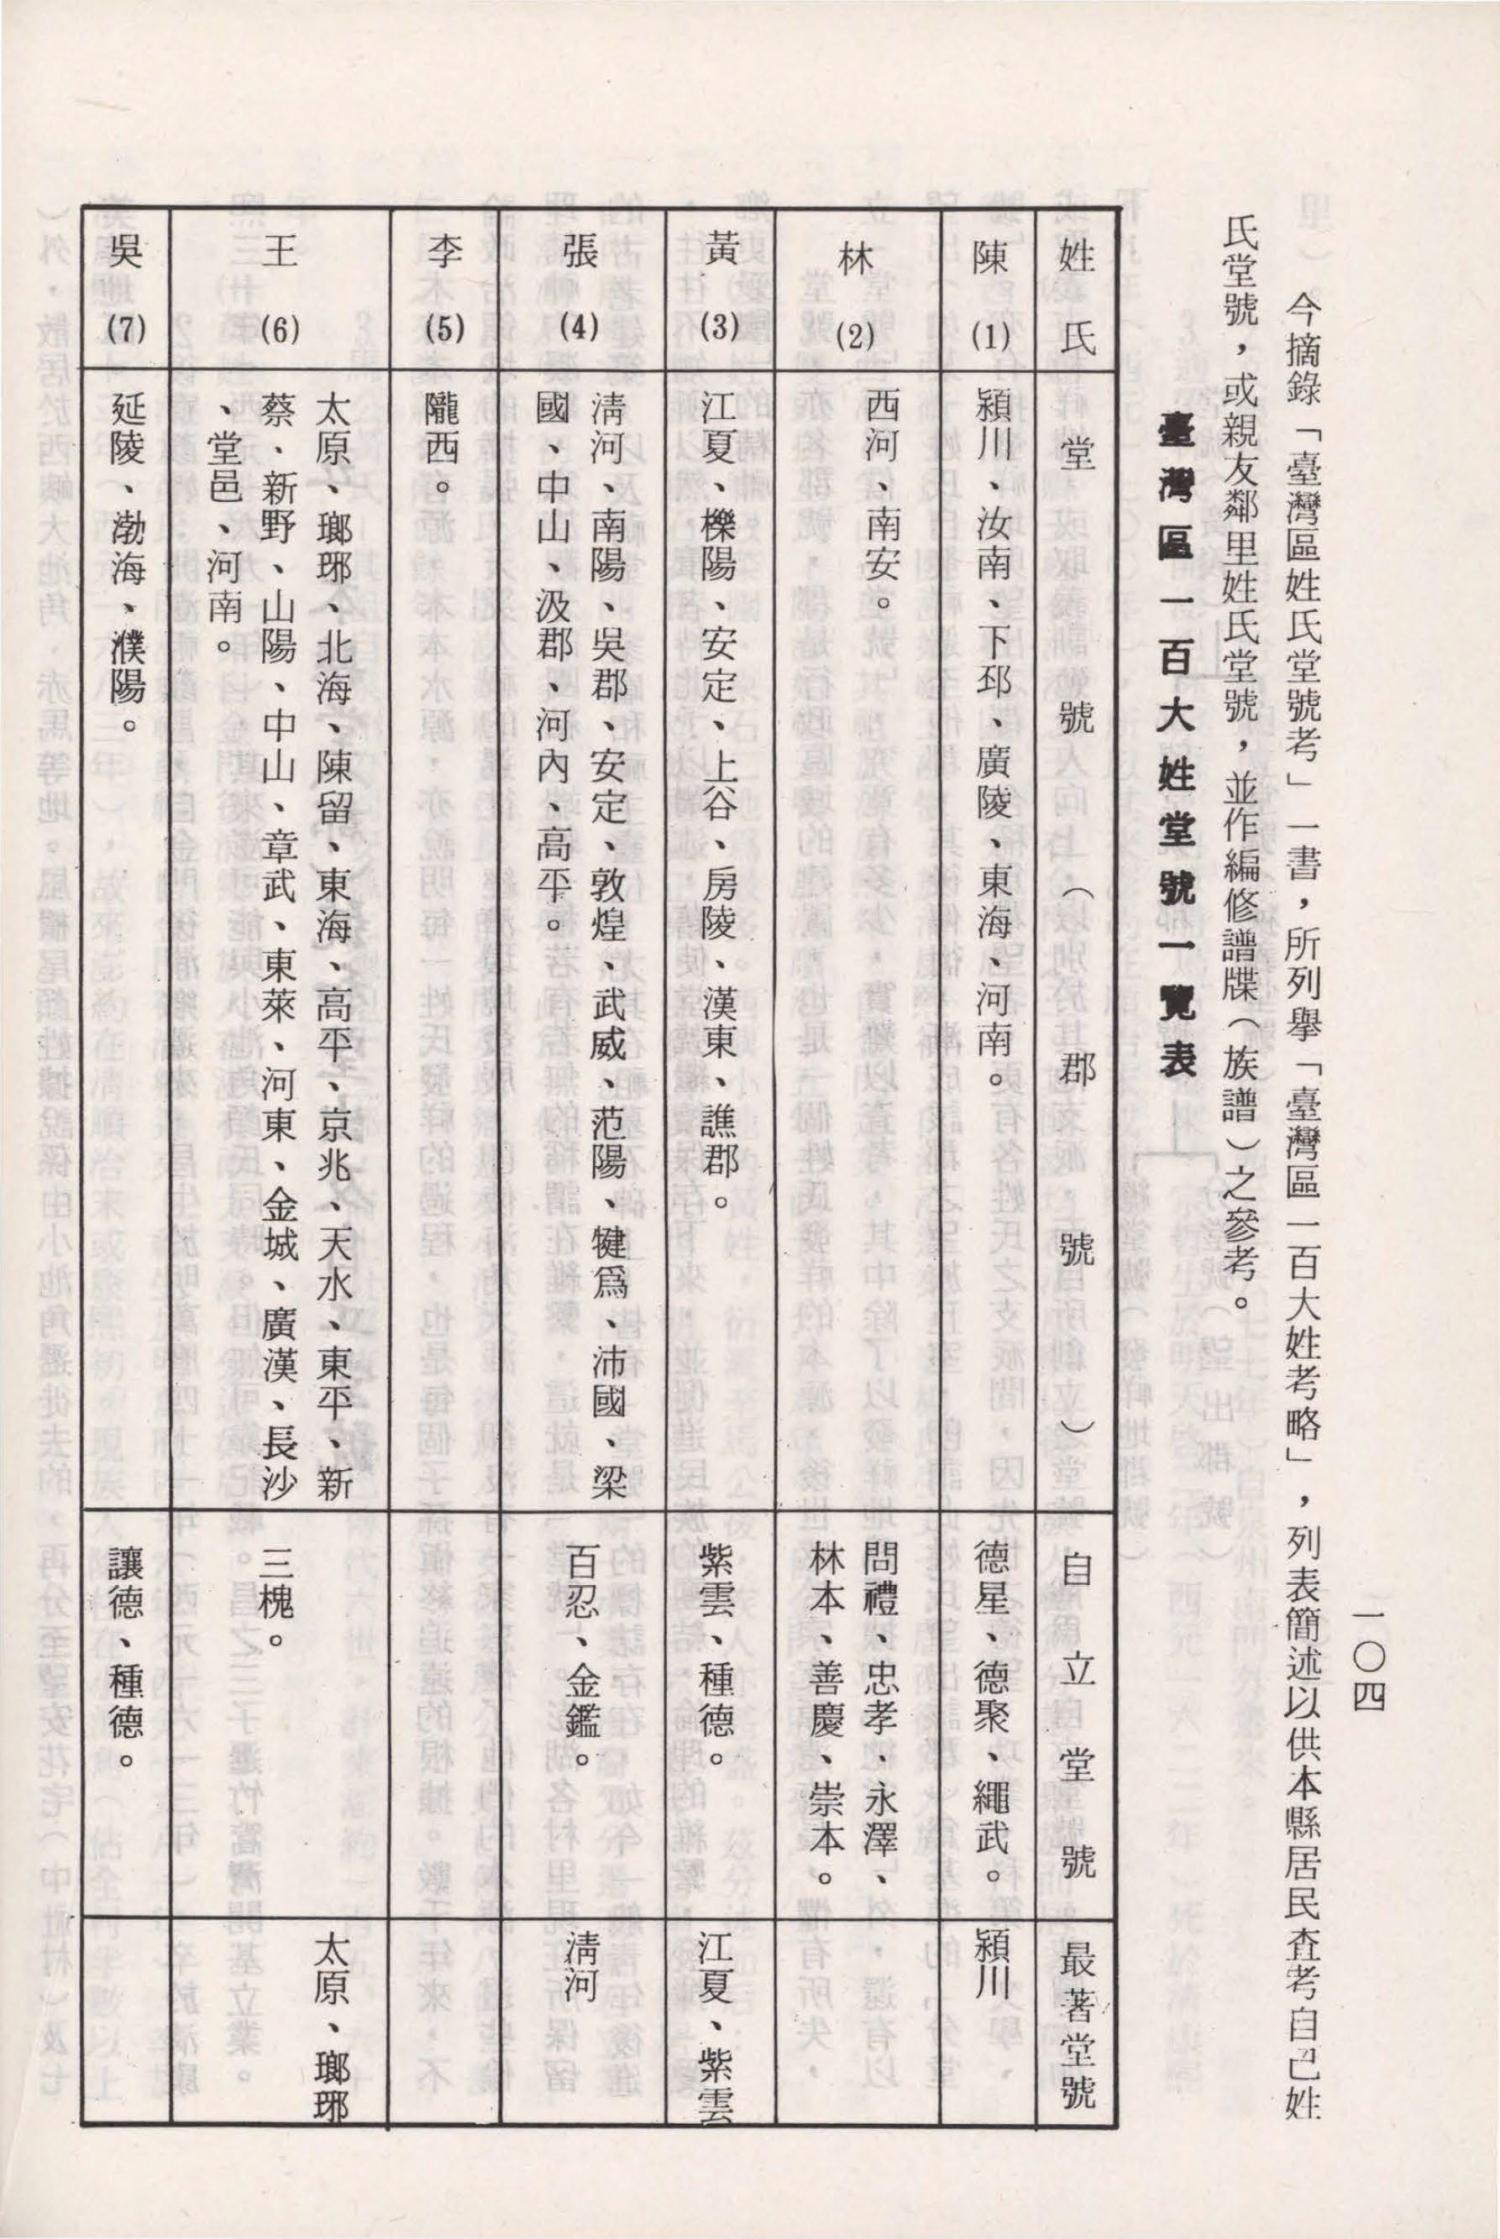 一〇四
今摘錄「臺灣區姓氏堂號考」一書，所列舉「臺灣區一百大姓考略」，列表簡述以供本縣居民查考自己姓
氏堂號，或親友鄰里姓氏堂號，並作編修譜牒（族譜）之參考。
臺灣區一百大姓堂號一覽表
姓氏
堂號（郡號）
自立堂號
最著堂號
陳(1)
潁川、汝南、下邳、廣陵、東海、河南。
德星、德聚、繩武。
潁川
林(2)
西河、南安。
問禮、忠孝、永澤、
林本、善慶、崇本。
黃(3)
江夏、櫟陽、安定、上谷、房陵、漢東、譙郡。
紫雲、種德。
江夏、紫雲
張(4)
淸河、南陽、吳郡、安定、敦煌、武威、范陽、犍爲、沛國、梁
國、中山、汲郡、河內、高平。
百忍、金鑑。
淸河
李(5)
隴西。
王(6)
太原、瑯琊、北海、陳留、東海、高平、京兆、天水、東平、新
蔡、新野、山陽、中山、章武、東萊、河東、金城、廣漢、長沙
、堂邑、河南。
三槐。
太原、瑯琊
吳(7)
延陵、渤海、濮陽。
讓德、種德。